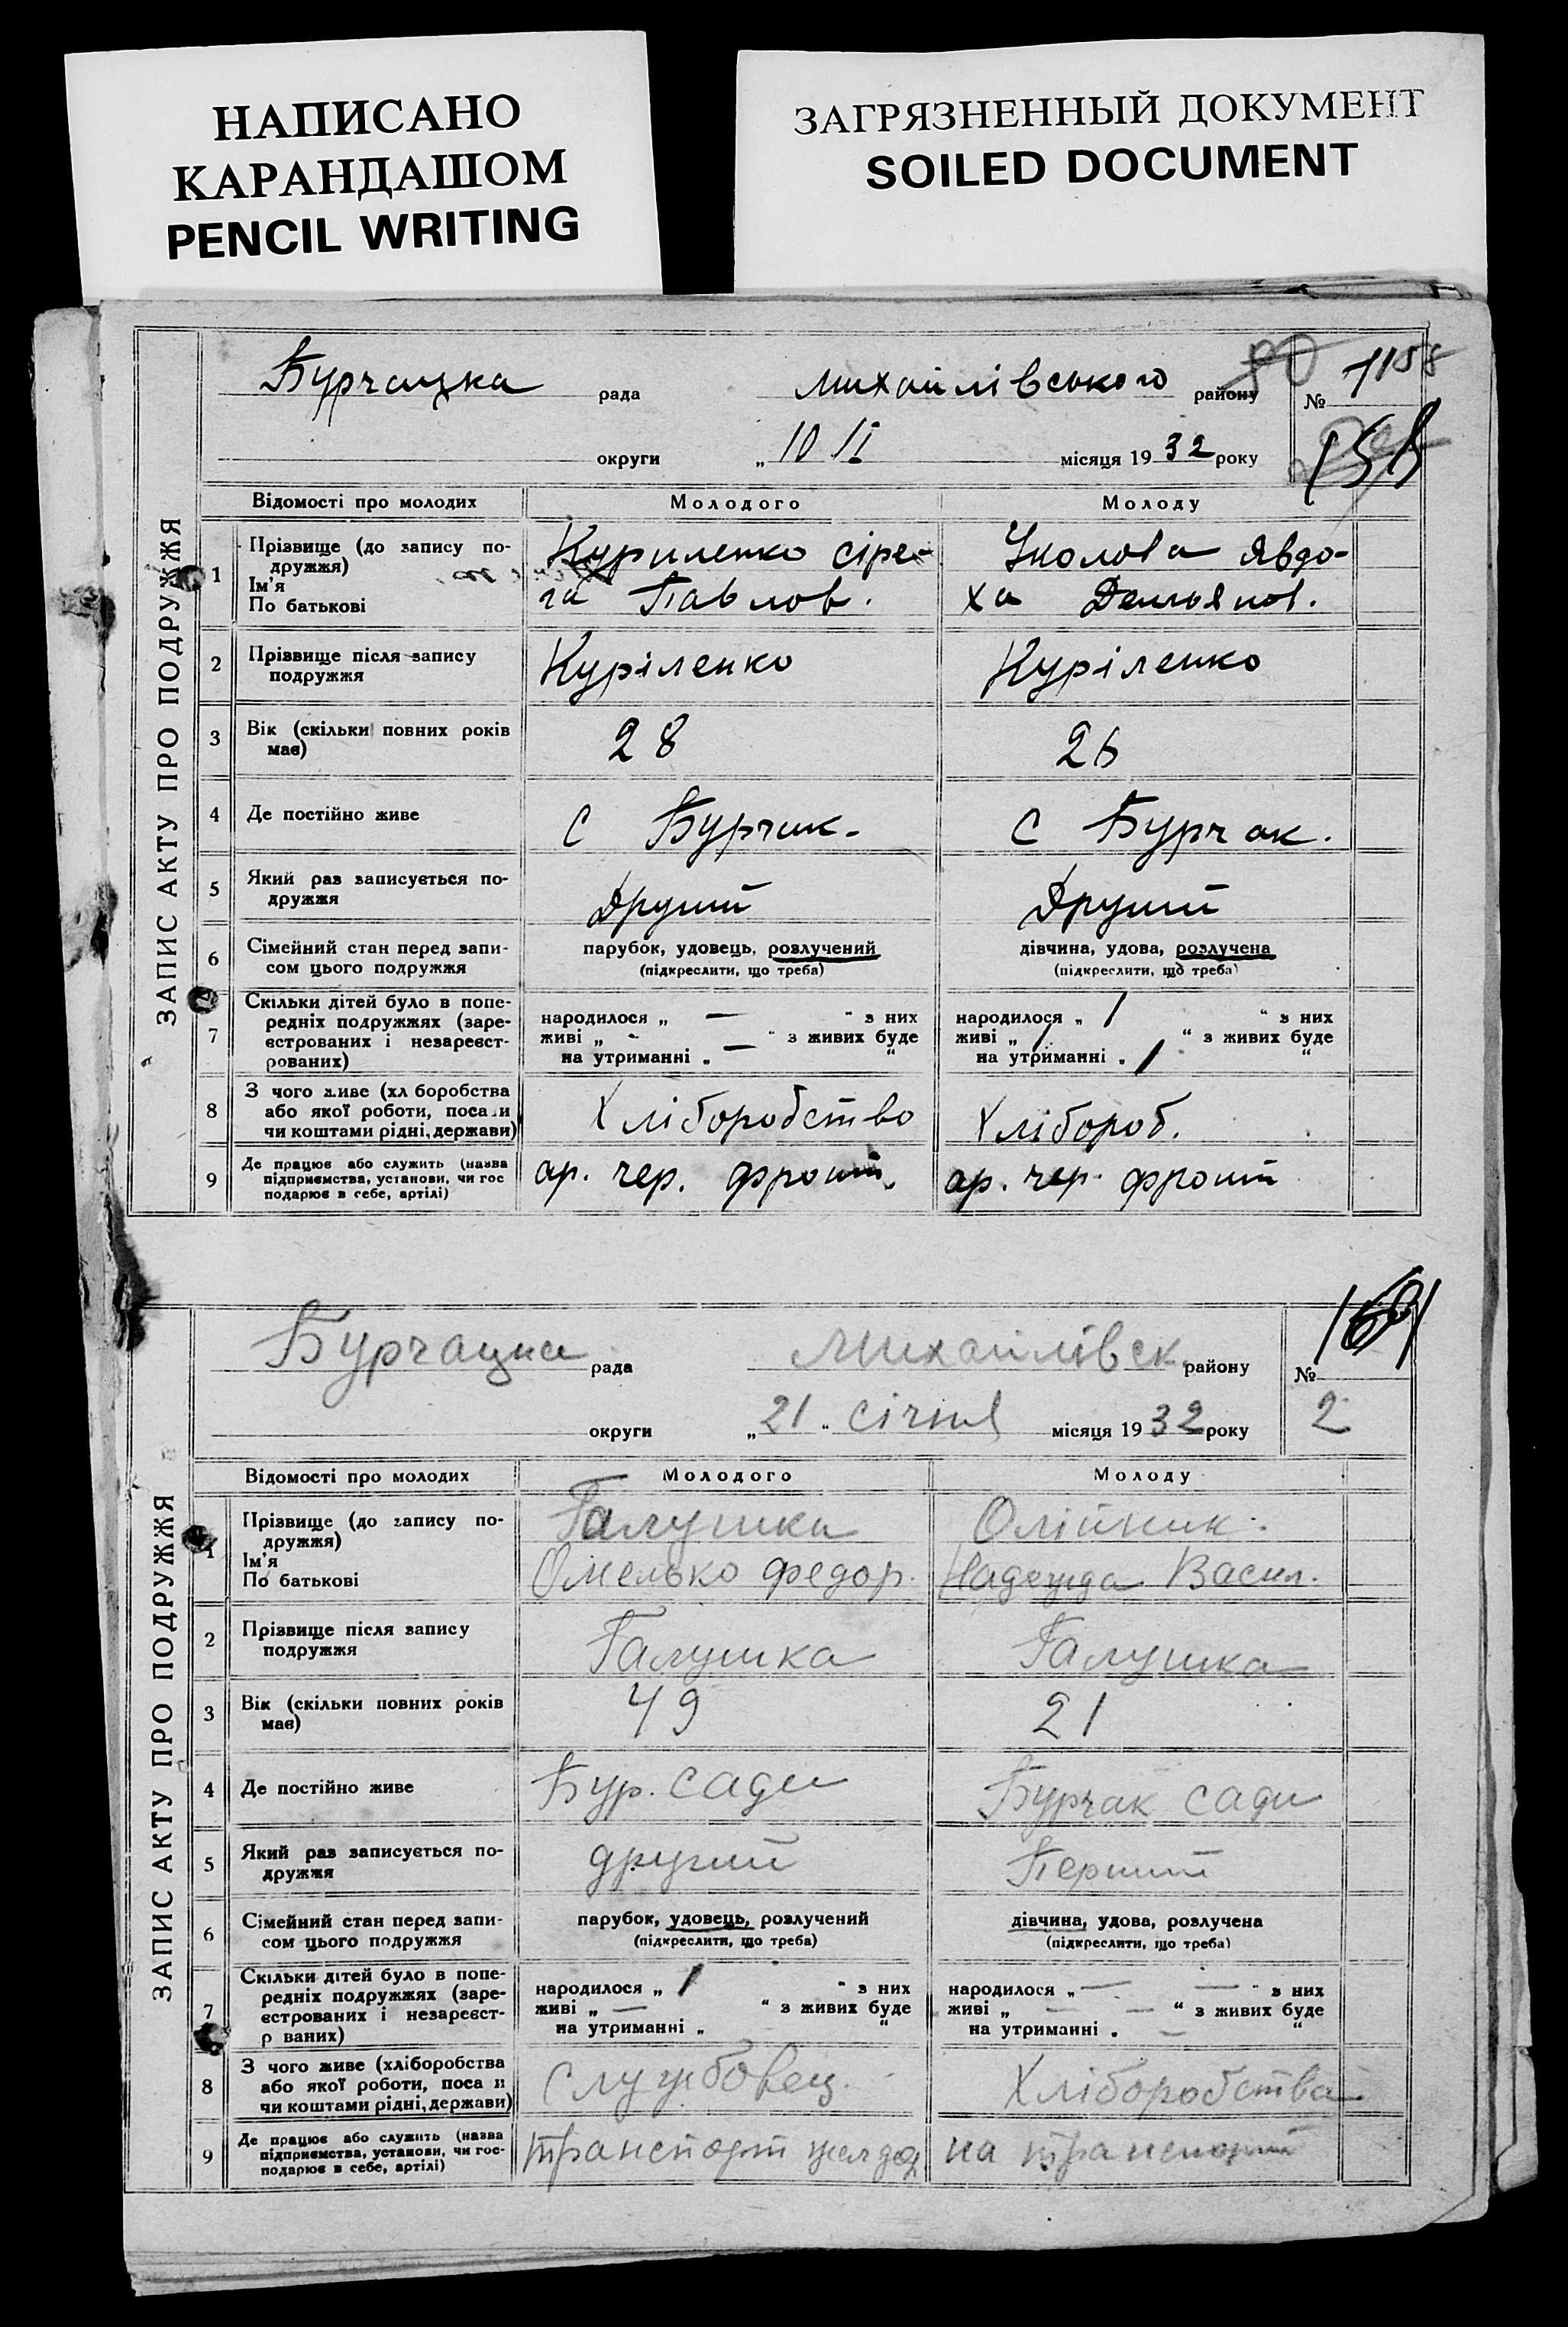 НАПИСАНО
КАРАНДАШОМ
PENCIL WRITING
ЗАГРЯЗНЕННЫЙ ДОКУМЕНТ
SOILED DOCUMENT
ЗАПИС АКТУ ПРО ПОДРУЖЖЯ
Бурчацка рада Михайлівського району № 1158
округи „ 10 II місяця 1932 року
Відомості про молодих Молодого Молоду
1 Прізвище (до запису подружжя) Куриленко сіре- Уколова Явдо-
Ім'я
По батькові га Павлов. ха Демьянов.
2 Прізвище після запису Куріленко Куріленко
подружжя
3 Вік (скільки повних років 28 26
має)
4 Де постійно живе с Бурчак. с Бурчак.
5 Який раз записується по- Другий Другий
дружжя
6 Сімейний стан перед запи- парубок, удовець, розлучений дівчина, удова, розлучена
сом цього подружжя (підкреслити, що треба) (підкреслити, що треба)
7 Скільки дітей було в попе-
редніх подружжях (заре- народилося „ — " з них народилося „ 1 " з них
єстрованих і незареєст- живі „ - " з живих буде живі „ 1 " з живих буде
рованих) на утриманні „ — " на утриманні „ 1 "
8 З чого живе (хл боробства
або якої роботи, посади Хліборобство Хлібороб.
чи коштами рідні, держави)
9 Де працює або служить (назва ар. чер. фронт. ар. чер. фронт
підприємства, установи, чи гос
подарює в себе, артілі)
ЗАПИС АКТУ ПРО ПОДРУЖЖЯ
Бурчацка рада Михайлівск району №
округи „ 21 " січня місяця 1932 року 2
Відомості про молодих Молодого Молоду
1 Прізвище (до запису по- Галушка Олійник.
дружжя)
Ім'я
По батькові Омелько Федор. Надежда Васил.
2 Прізвище після запису Галушка Галушка
подружжя
3 Вік (скільки повних років 49 21
має)
4 Де постійно живе Бур. Сади Бурчак Сади
5 Який раз записується по- другий Перший
дружжя
6 Сімейний стан перед запи- парубок, удовець, розлучений дівчина, удова, розлучена
сом цього подружжя (підкреслити, що треба) (підкреслити, що треба)
7 Скільки дітей було в попе-
редніх подружжях (заре- народилося „ 1 " з них народилося „ — — " з них
єстрованих і незареєст- живі „ — " з живих буде живі „ — — " з живих буде
р ваних) на утриманні „ " на утриманні „ — "
8 З чого живе (хліборобства
або якої роботи, поса и Службовец. Хліборобства
чи коштами рідні, держави)
9 Де працює або служить (назва Транспорт жел дор на транспорт
підприємства, установи, чи гос-
подарює в себе, артілі)